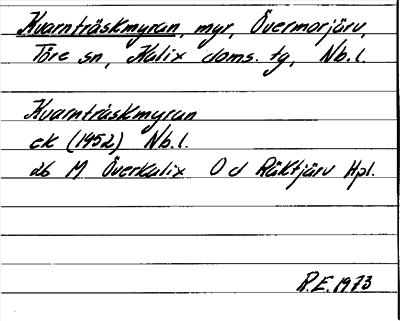 Kvarnträskmyran, myr, Övermorjärv,
Töre sn, Kalix doms. tg, Nb. l.
Kvarnträskmyran
ek (1952) Nb. l.
26 M Överkalix O d Räktjärv Hpl.
R.E. 1973